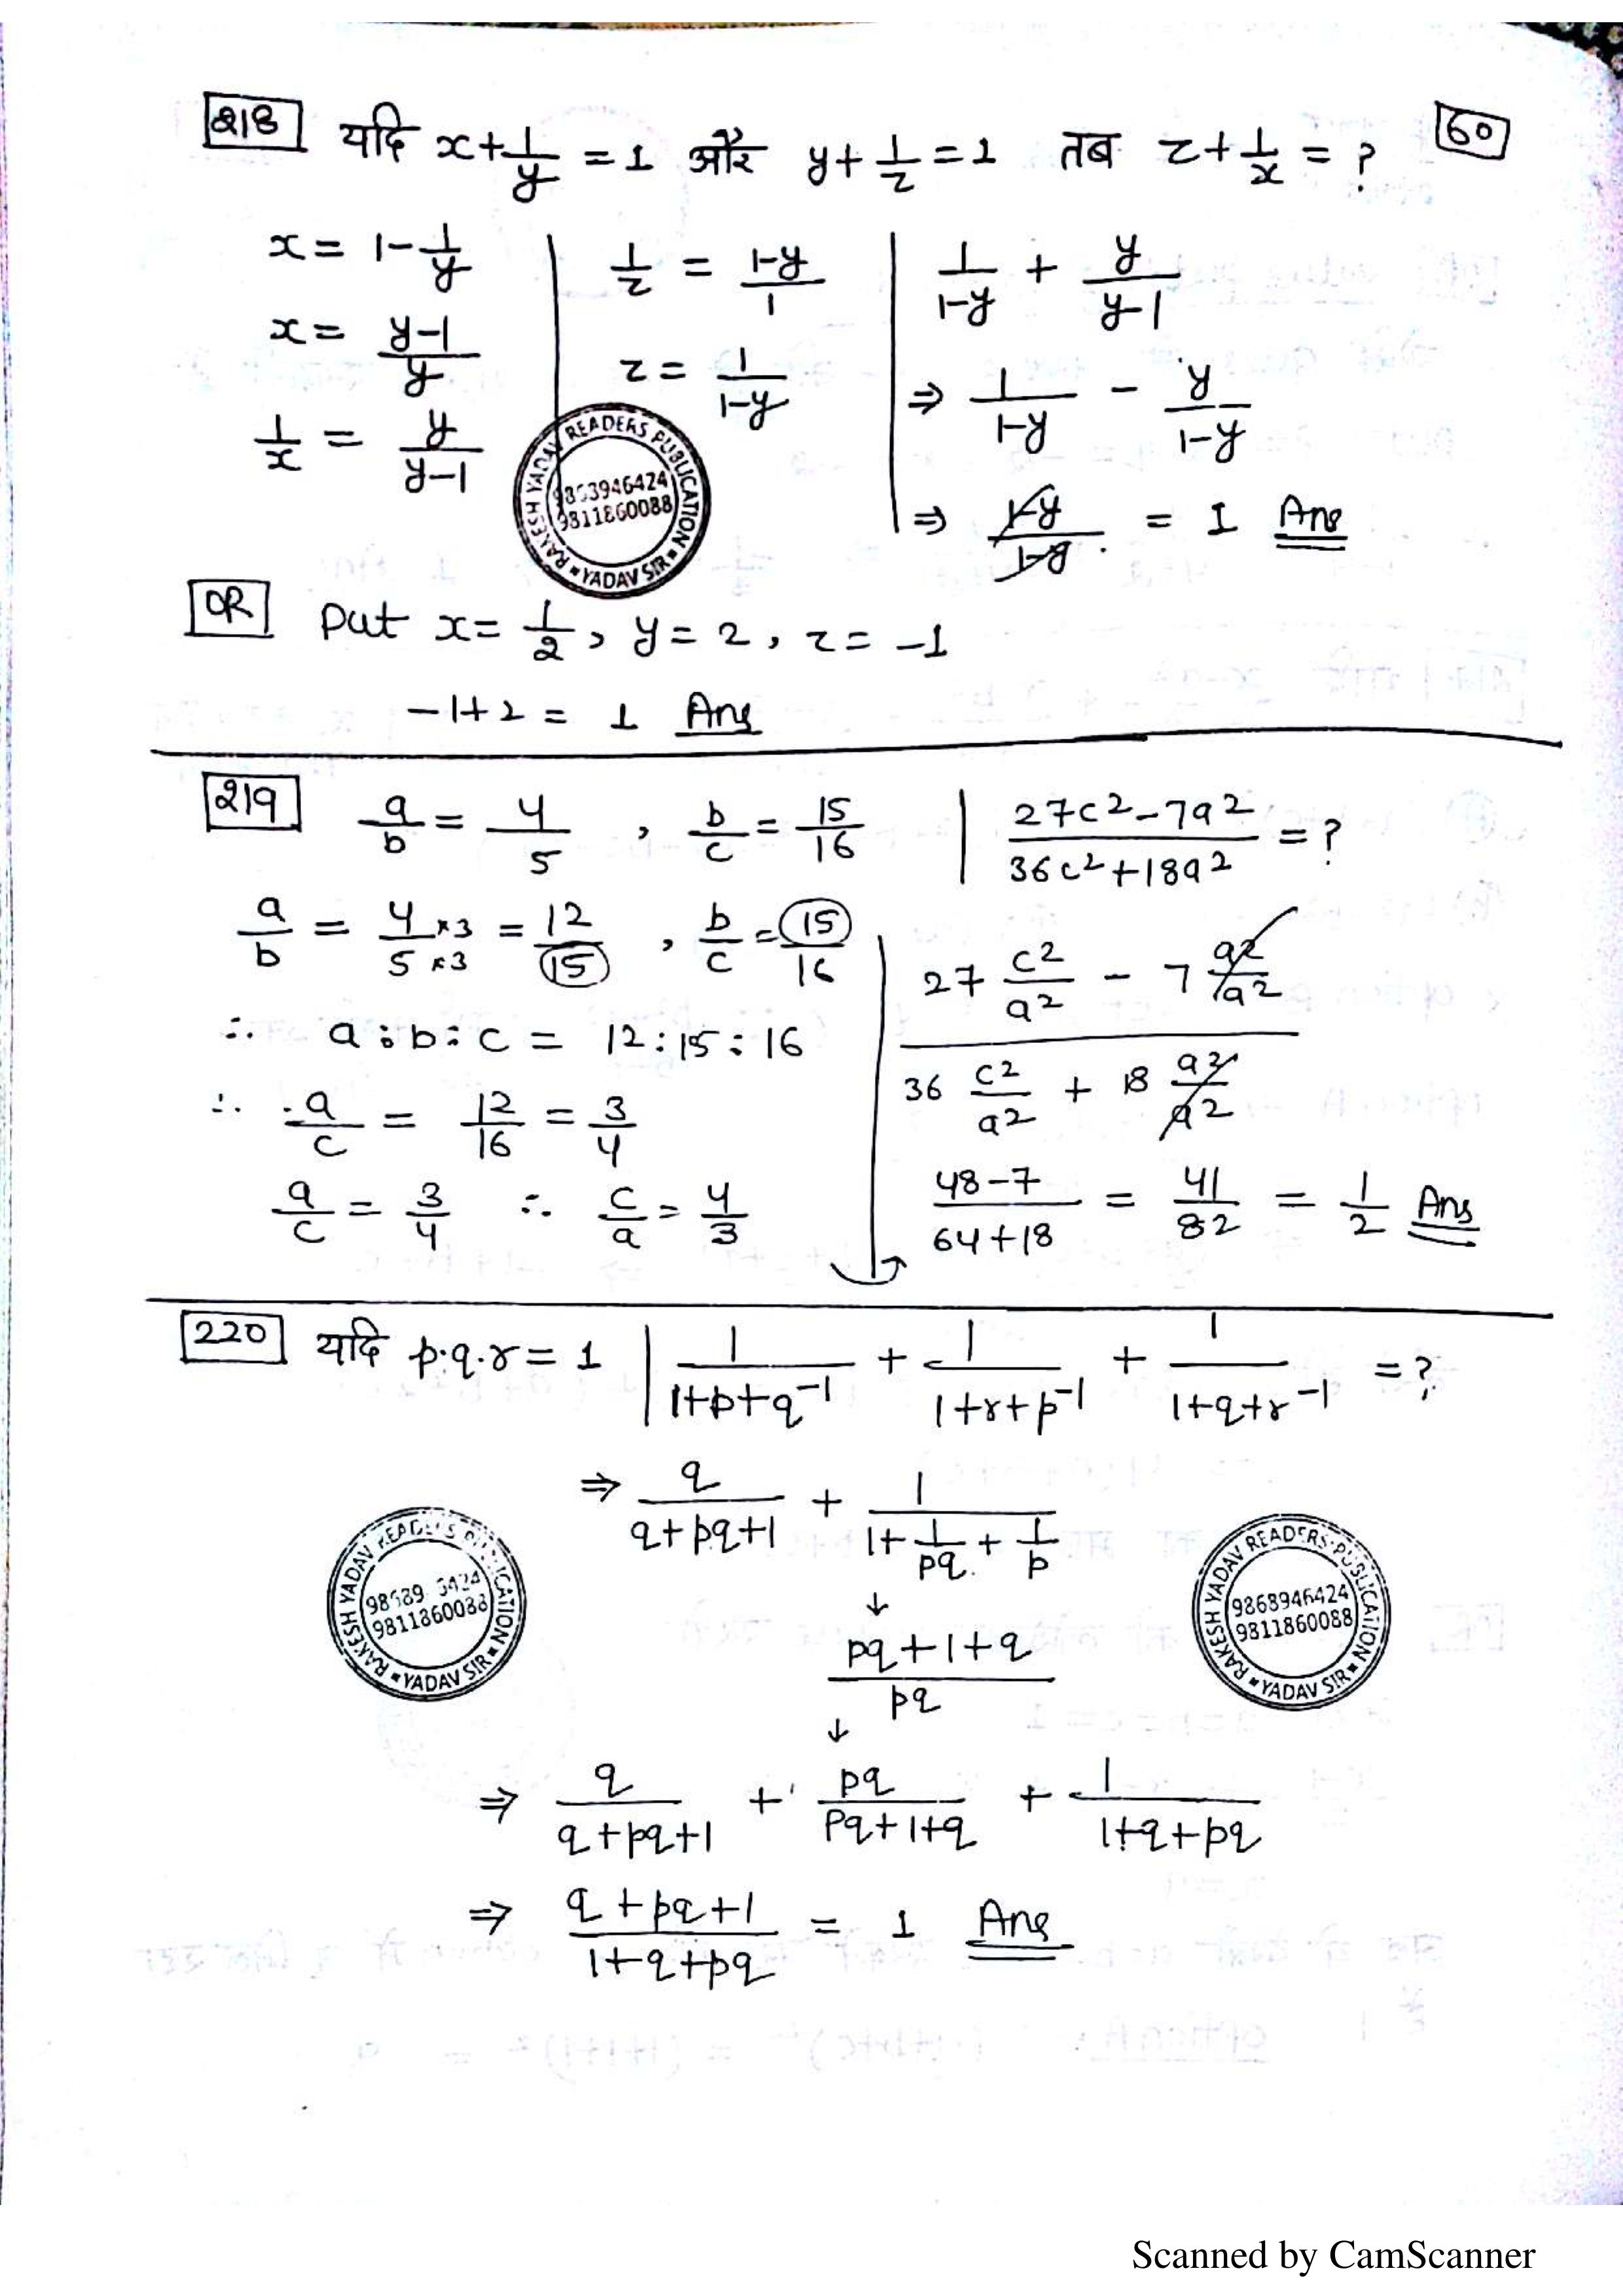 218 यदि x+1/y = 1 और y+1/z = 1 तब z+1/x = ?
60
x = 1-1/y
x = y-1/y
1/x = y/y-1
1/z = 1-y/1
z = 1/1-y
1/1-y + y/y-1
⇒ 1/1-y - y/1-y
⇒ 1-y/1-y = 1 Ans
RAKESH YADAV READERS PUBLICATION
9868946424
9811860088
YADAV SIR
OR Put x = 1/2, y = 2, z = -1
-1+2 = 1 Ans
219 a/b = 4/5 , b/c = 15/16 | 27c²-7a²/36c²+18a² = ?
a/b = 4×3/5×3 = 12/15 , b/c = 15/16
∴ a:b:c = 12:15:16
∴ a/c = 12/16 = 3/4
a/c = 3/4 ∴ c/a = 4/3
27 c²/a² - 7 a²/a²
36 c²/a² + 18 a²/a²
48-7/64+18 = 41/82 = 1/2 Ans
220 यदि p.q.r = 1 | 1/1+p+q⁻¹ + 1/1+r+p⁻¹ + 1/1+q+r⁻¹ = ?
⇒ q/q+pq+1 + 1/1+1/pq+1/p
↓
pq+1+q/pq
↓
RAKESH YADAV READERS PUBLICATION
9811860088
YADAV SIR
RAKESH YADAV READERS PUBLICATION
9868946424
9811860088
YADAV SIR
⇒ q/q+pq+1 + pq/pq+1+q + 1/1+q+pq
⇒ q+pq+1/1+q+pq = 1 Ans
Scanned by CamScanner